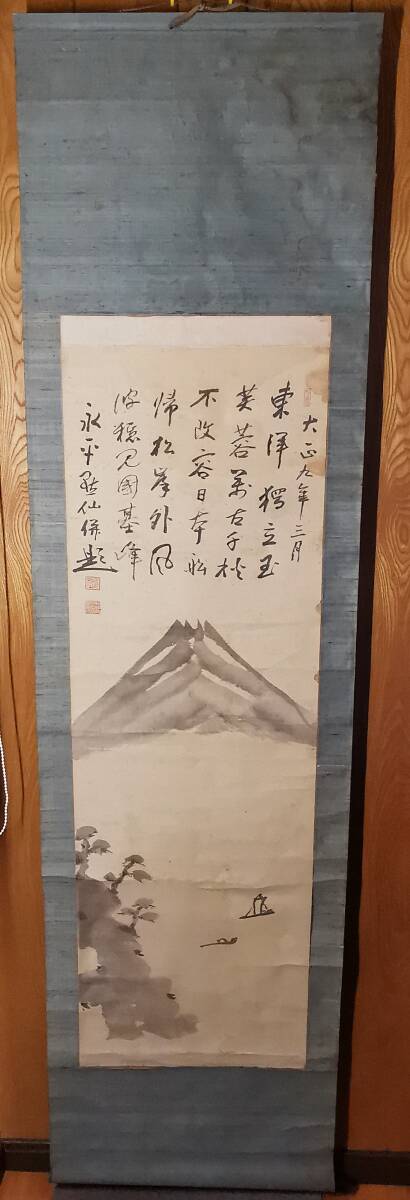 大正九年三月
東洋獨立玉
芙蓉萬古千秋
不改容日本船
帰松岸外風
波穏見國基峰
永平黙仙併題